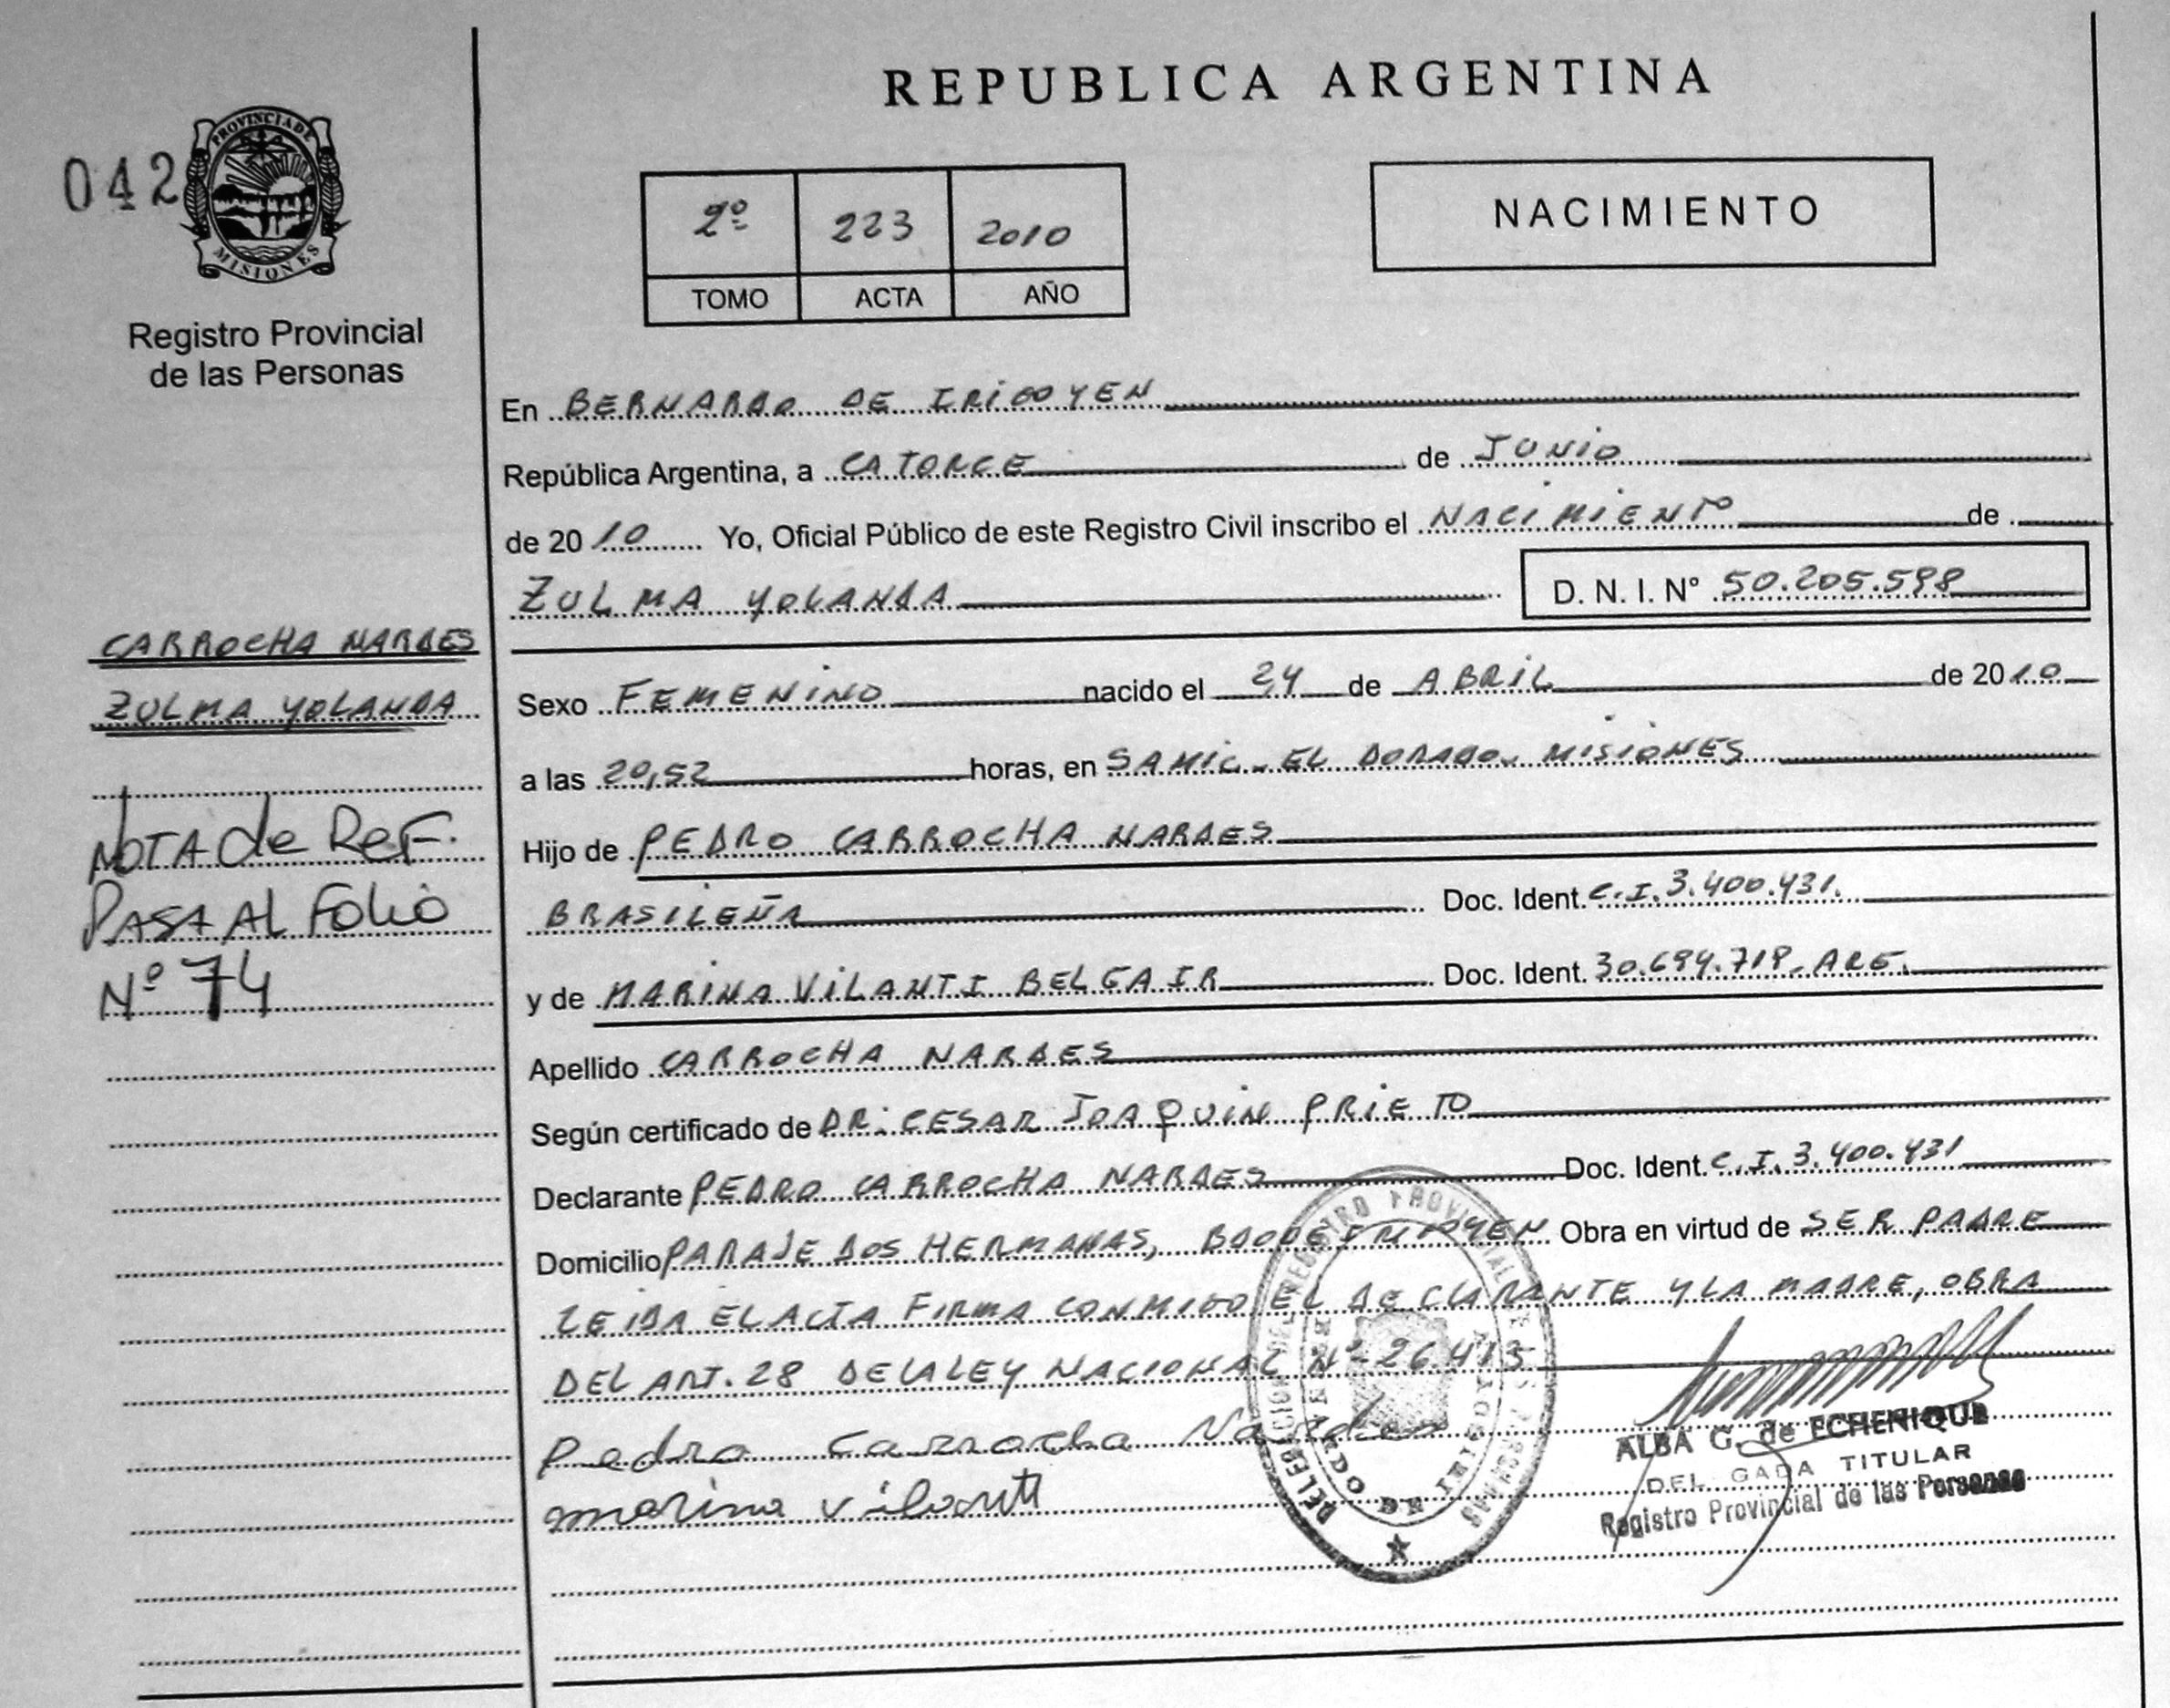 REPUBLICA ARGENTINA
042
PROVINCIA DE
MISIONES
Registro Provincial
de las Personas
2º 223 2010
TOMO ACTA AÑO
NACIMIENTO
En BERNARDO DE IRIGOYEN
República Argentina, a CATORCE de JUNIO
de 2010 Yo, Oficial Público de este Registro Civil inscribo el NACIMIENTO de
ZULMA YOLANDA D. N. I. N° 50.205.598
CARROCHA NARDES
ZULMA YOLANDA
NOTA de ReF.
PASA AL FoLio
Nº 74
Sexo FEMENINO nacido el 24 de ABRIL de 2010
a las 20,52 horas, en SAMIC. EL DORADO. MISIONES
Hijo de PEDRO CARROCHA NARDES
BRASILEÑA Doc. Ident. C.I. 3.400.431.
y de MARINA VILANTI BELGAIR Doc. Ident. 30.694.718. ARG.
Apellido CARROCHA NARDES
Según certificado de DR. CESAR JOAQUIN PRIETO
Declarante PEDRO CARROCHA NARDES Doc. Ident. C.I. 3.400.431
Domicilio PARAJE DOS HERMANAS, BDO DE IRIGOYEN Obra en virtud de SER PADRE
LEIDA EL ACTA FIRMA CONMIGO EL DECLARANTE Y LA MADRE, OBRA
DEL ART. 28 DE LA LEY NACIONAL Nº 26.413
Pedro Carrocha Nardes
marina vilanti
ALBA G. de ECHENIQUE
DELEGADA TITULAR
Registro Provincial de las Personas